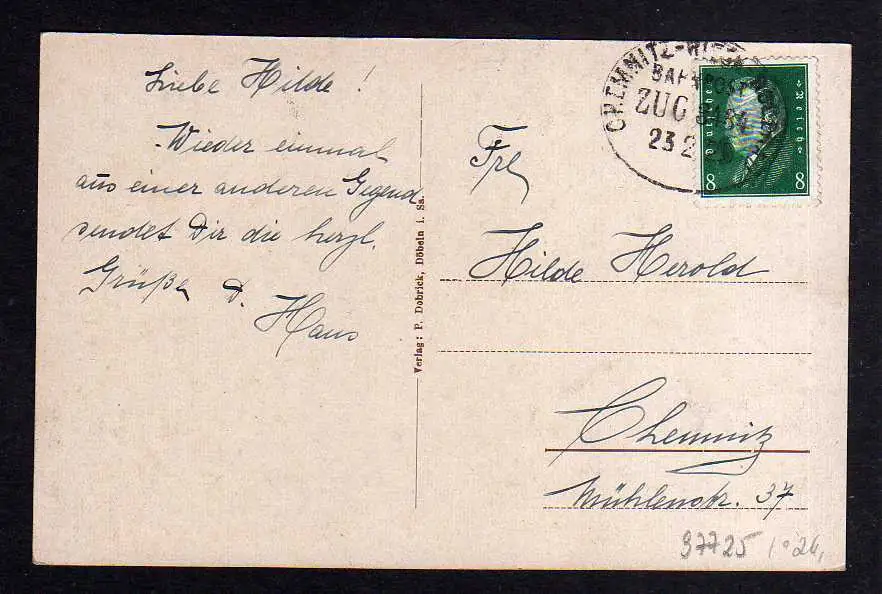 Liebe Hilde!
Wieder einmal
aus einer anderen Gegend
sendet Dir die herzl.
Grüße d.
Hans
Verlag: P. Dobrick, Döbeln i. Sa.
CHEMNITZ-
BAHNPOST
ZUG
23 2
Deutsches Reich
8 8
Frl
Hilde Herold
Chemnitz
Mühlenstr. 37